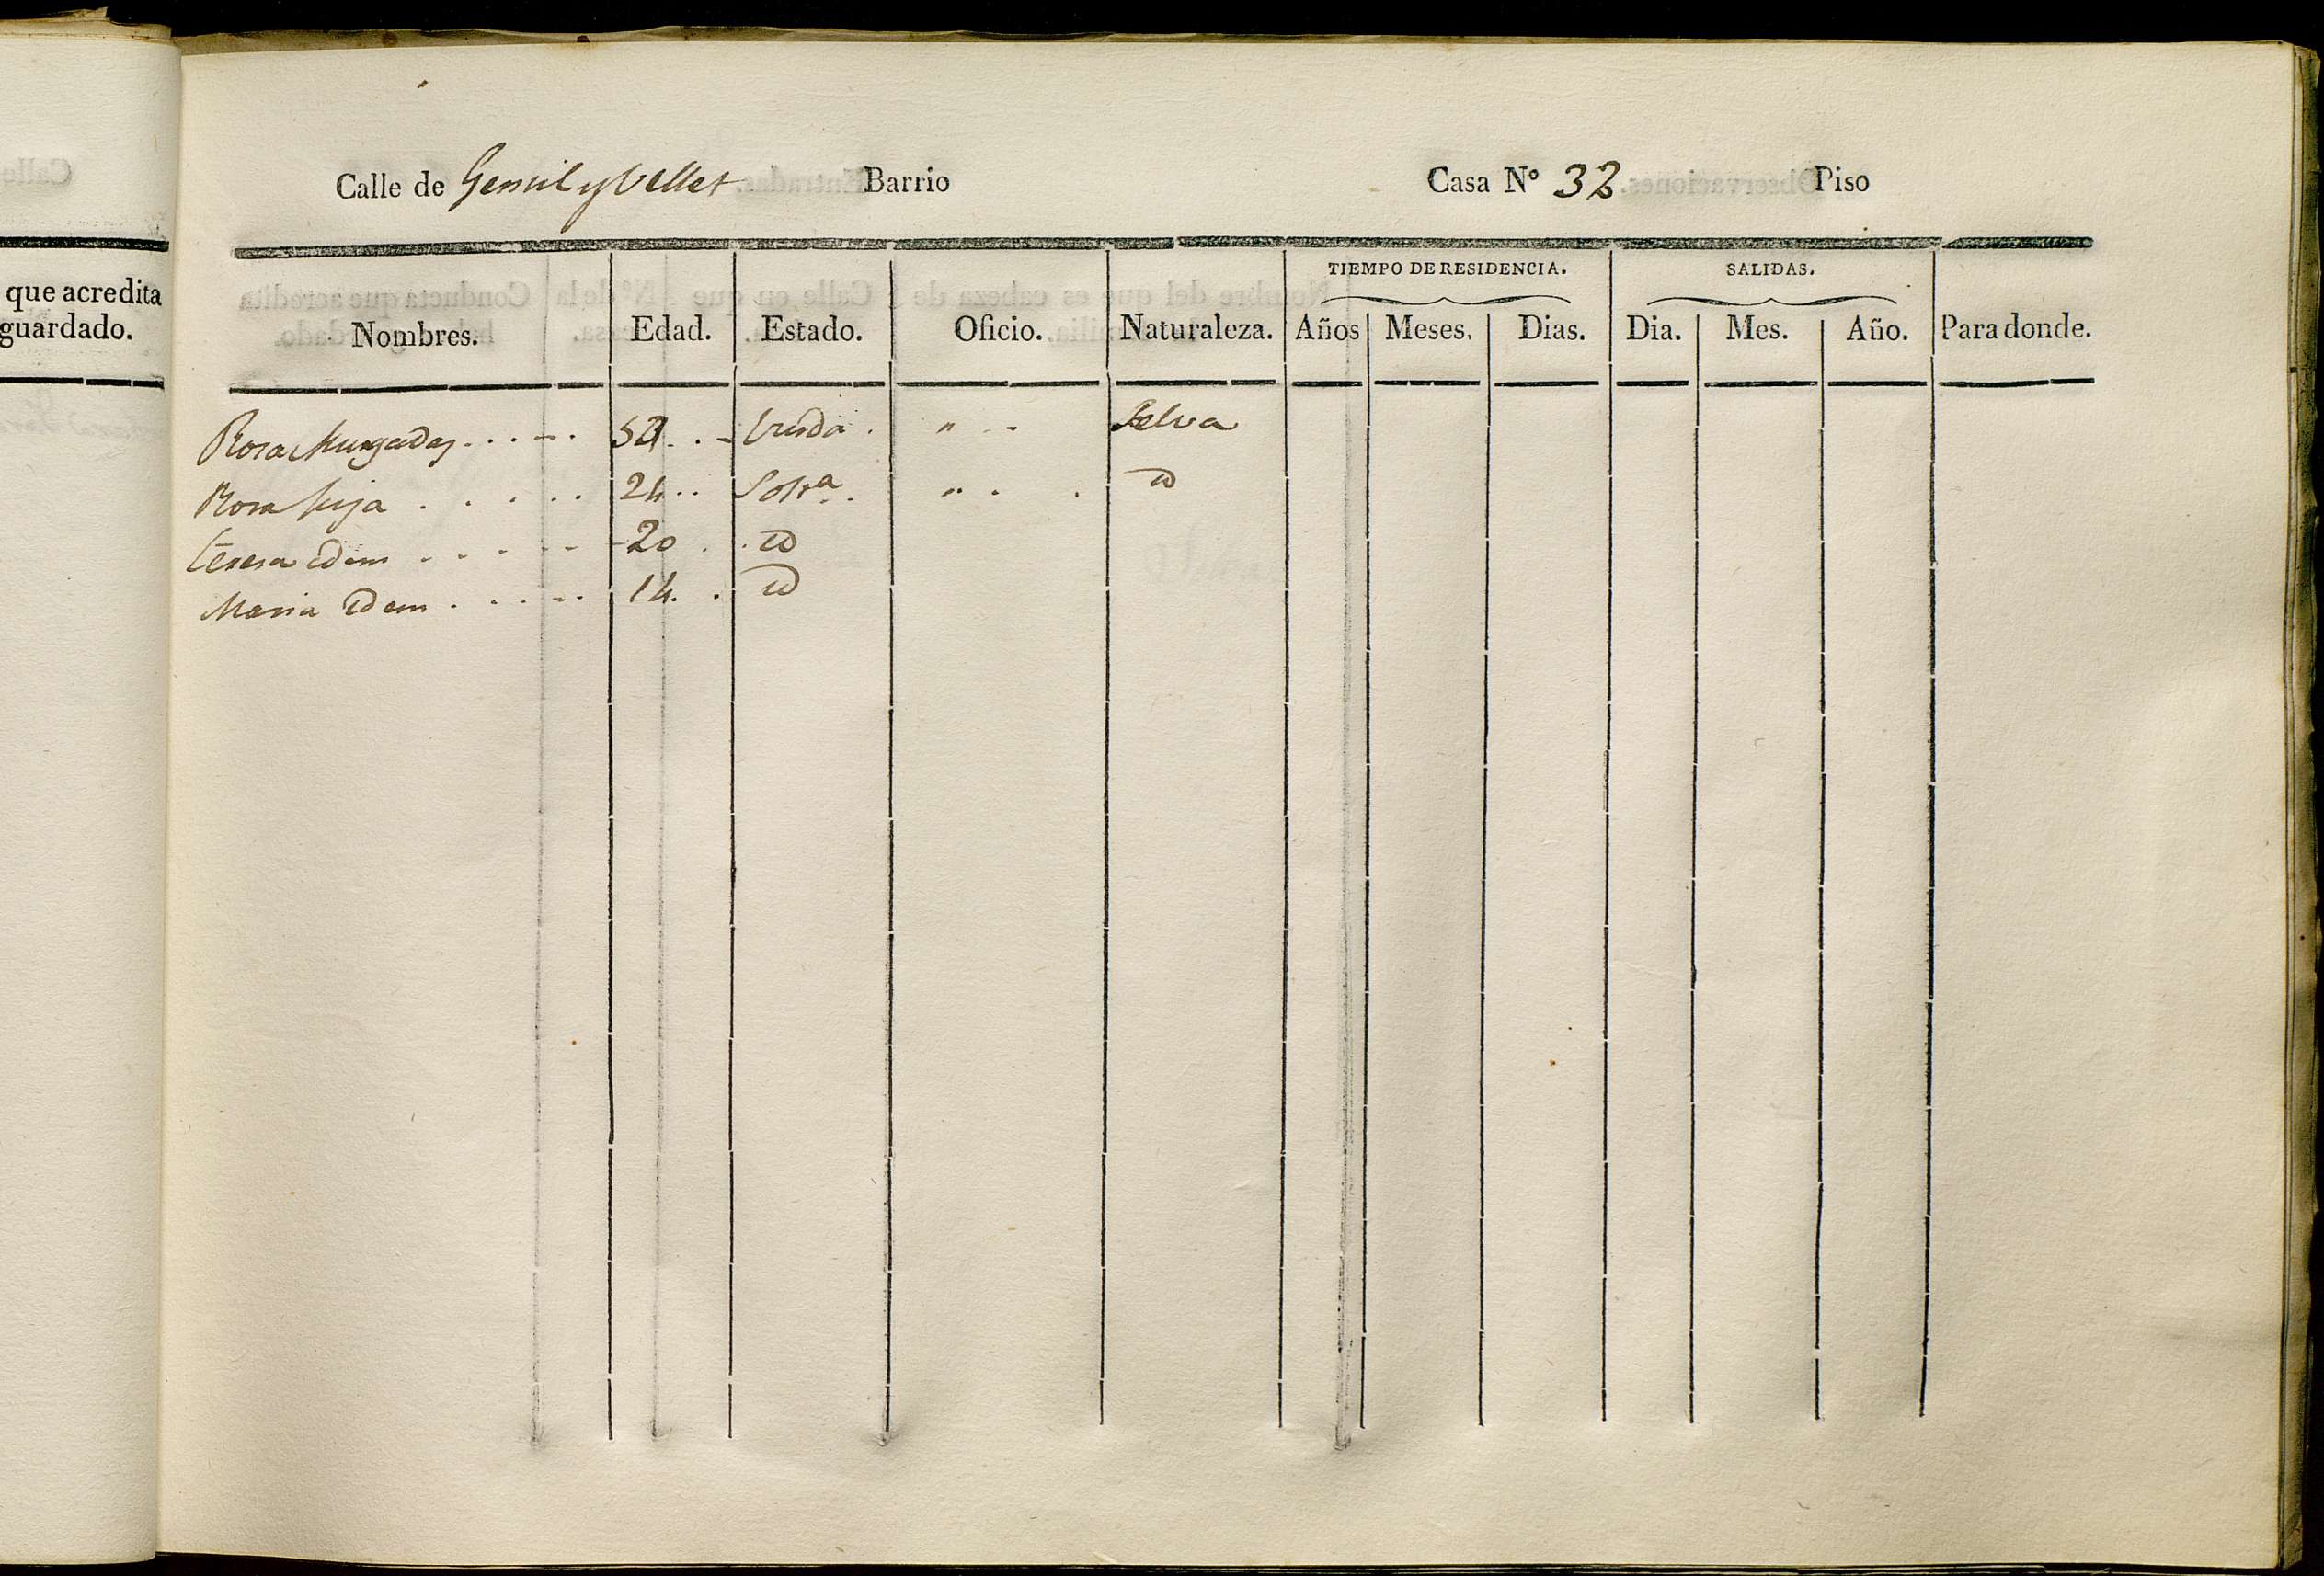 Calle
que acredita
guardado.
Calle de Gensil y Vellet Barrio Casa Nº 32 Piso
TIEMPO DE RESIDENCIA. SALIDAS.
Nombres. Edad. Estado. Oficio. Naturaleza. Años Meses. Dias. Dia. Mes. Año. Para donde.
Rosa Mungadas . . . - . . . - Viuda . " . - Selva
Rosa hija . . . . . 24 . . Solra . " . . id
Teresa idem . . . . - 20 . . id
Maria idem . . . - . 14 . . id